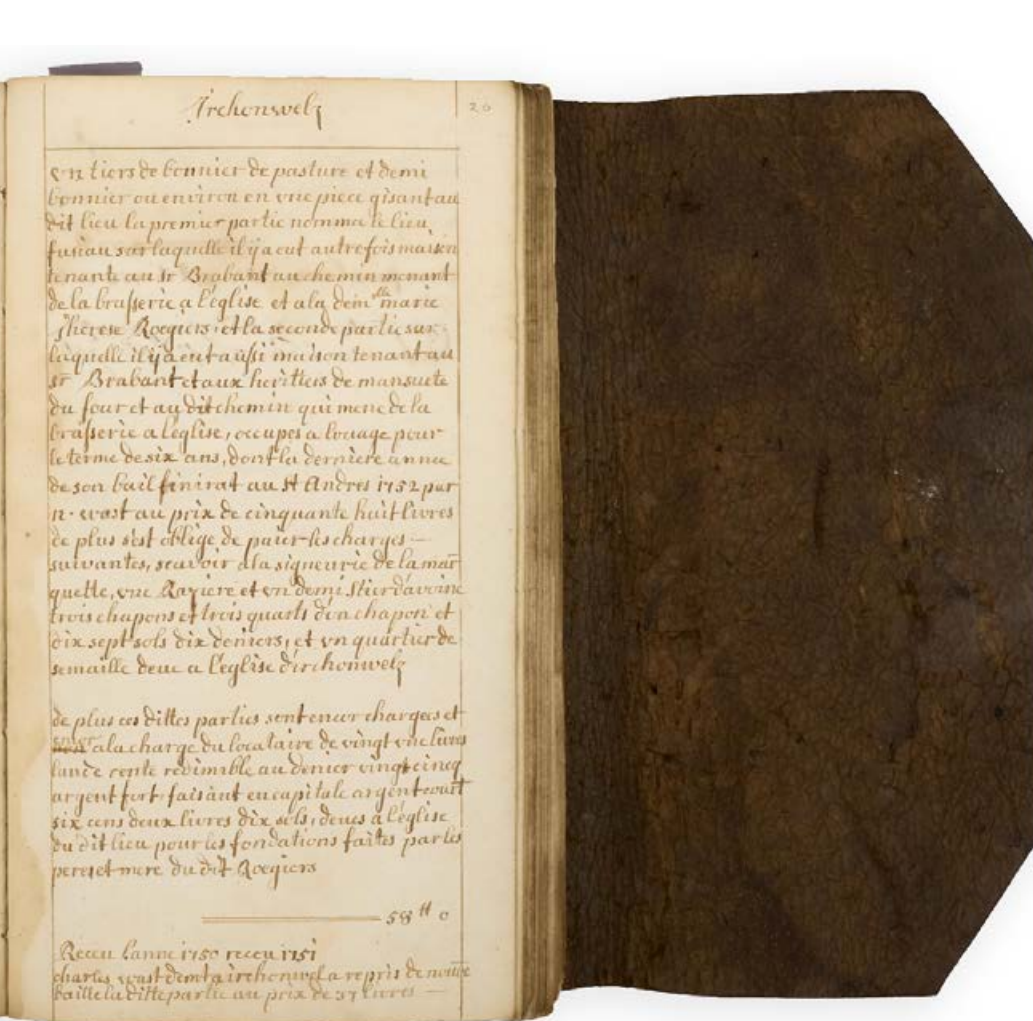 Irchonwelz
20
vn tiers de bonnier de pasture et demi
bonnier ou environ en vne piece gisant au
dit lieu la premier partie nomma le lieu
fusiau sur laquelle il ija eut autrefois maison
tenante au sr Brabant au chemin menant
de la brasserie a l'église et a la demlle marie
Therese Roegiers, et la seconde partie sur
laquelle il ija eut aussi maison tenant au
sr Brabant et aux heritiers de mansuete
du four et au dit chemin qui mene de la
brasserie a l'eglise, occupes a louage pour
le terme de six ans, dont la derniere annee
de son bail finirat au st Andres 1752 par
n. wast au prix de cinquante huit livres
de plus s'est obligé de paier les charges —
suivantes, scavoir a la signeurie de la mar
quette, vne Raziere et vn demi stier d'avoine
trois chapons et trois quarts d'vn chapon et
dix sept sols dix deniers, et vn quartier de
semaille deue a l'eglise d'irchonwelz
de plus ces dittes parties sont encor chargees et
a la charge du locataire de vingt vne livres
l'an de rente redimible au denier vingt cincq
argent fort faisant en capitale argent court
six cens deux livres dix sols, deues à l'église
du dit lieu pour les fondations faites par les
peres et mere du dit Roegiers
58 tt 0
Receu l'anne 1750 receu 1751
charles wast demt a irchonwel a repris de nouve
baille la ditte partie au prix de 37 livres —